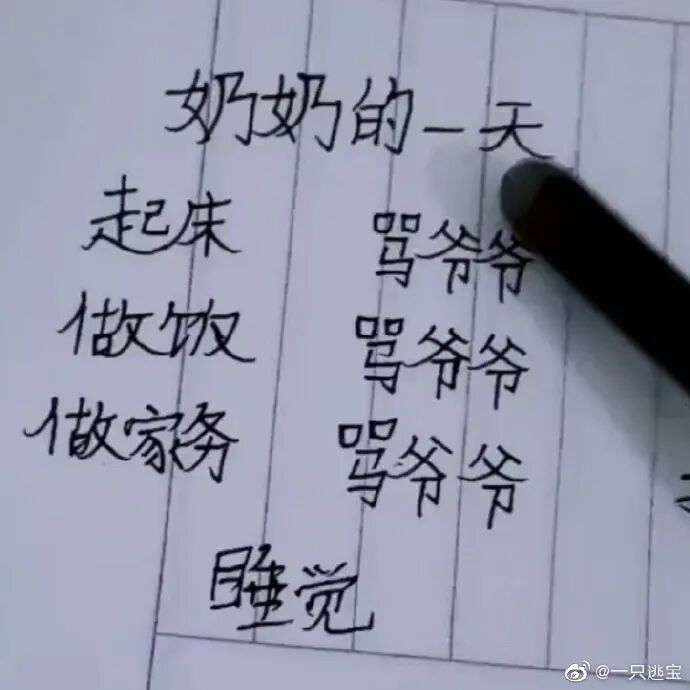 奶奶的一天
起床 骂爷爷
做饭 骂爷爷
做家务 骂爷爷
睡觉
@一只逃宝